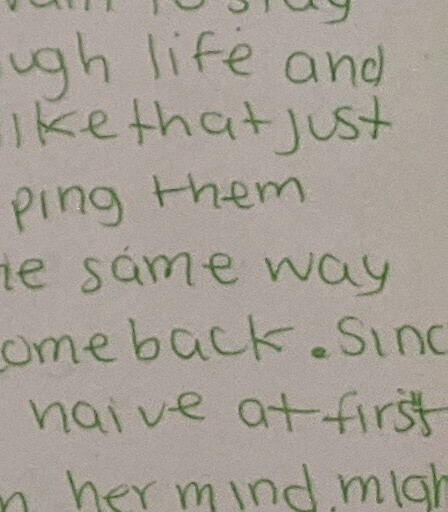 to stay
ugh life and
like that just
ping them
same way
ome back. Sinc
naive at first
her mind. migh